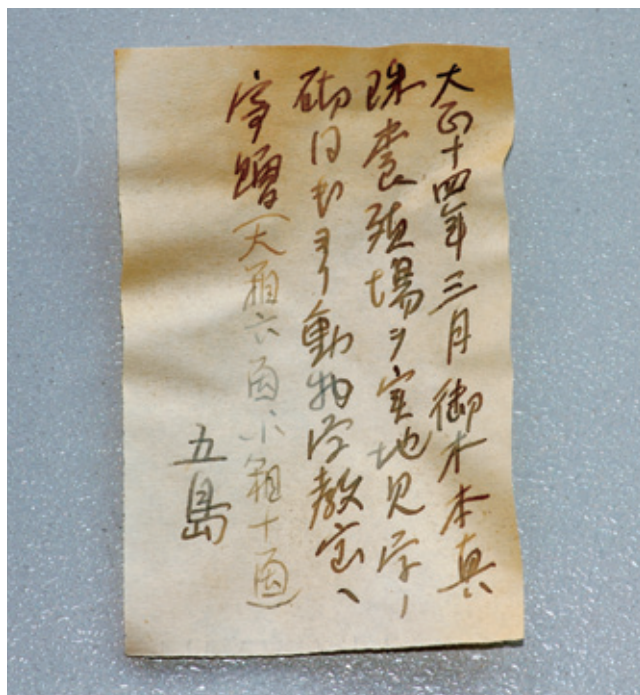 大正十四年三月御木本真
珠養殖場ヲ実地見学ノ
砌同氏ヨリ動物学教室ヘ
寄贈(大箱六函小箱十函)
五島